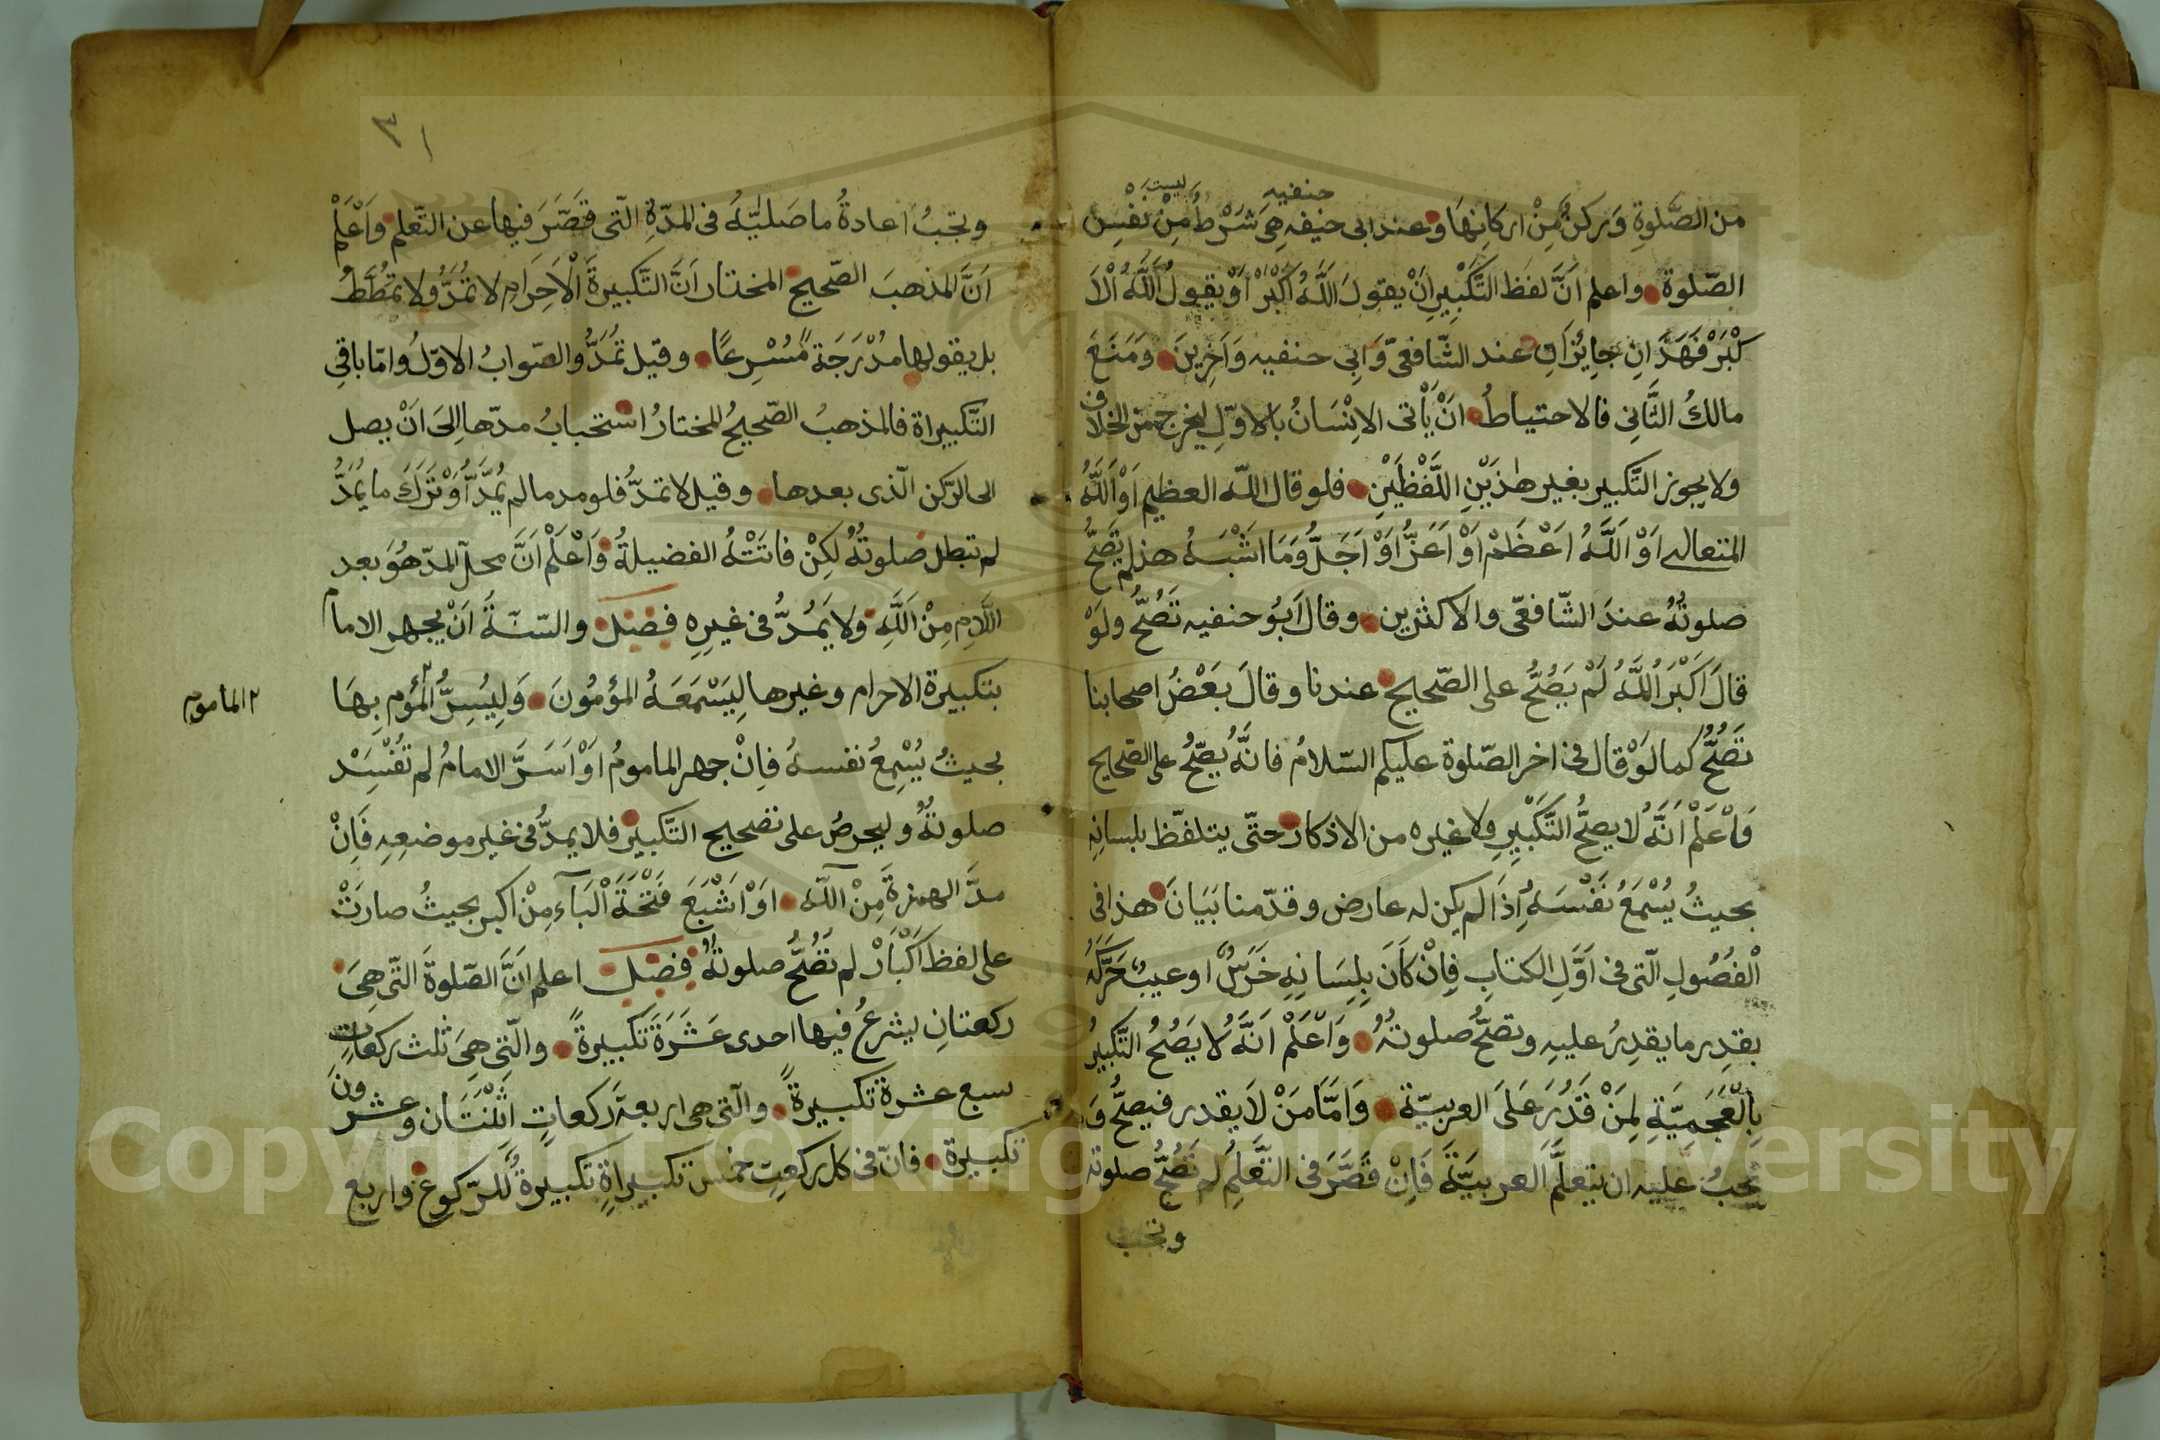 حنفيه ليست
من الصَّلوةِ وَركنٌ مِنْ اركانِهَا وعند ابى حنيفه هِىَ شَرْطٌ مِنْ نفْسِ
الصّلوة واعلم اَنَّ لفظ التّكْبِيرِ اَنْ يقولَ اَللَّهُ اَكْبَرْ اَوْ يقولُ اَللَّهُ الْاَ
كْبَرْ فَهَذَانِ جايُزاَنِ عند الشّافعىّ وَابِى حنفيه وَآخِرينَ وَمَنَعَ
مالكُ الثَّانى فالاحتياطُ انْ يأْتى الانْسَانُ بالاوّلِ ليخرج مِنَ الخلاف
ولا يجوز التّكبير بغير هٰذَيْنِ اللَّفْظَيْنِ فلو قال اللّه العظيم اَوْ اَللَّهُ
المتعالى اَوْ اَللَّهُ اعْظَمْ اَوْ اَعَزُّ اَوْ اَجَلُّ وَمَا اشْبَهُ هذا لم تَصُحَّ
صلوتُهُ عندَ الشّافعّى والاكثرين وقال اَبُو حنفيه تَصُحُّ ولَوْ
قالَ اَكْبَرَ اُللَّهُ لَمْ يَصُحَّ على الصّحيح عندنا وقالَ بَعْضُ اصحابنا
تَصُحُّ كما لَوْ قال فى اخر الصّلوة عليكم السّلامُ فانَّهُ يُصّحُ على الصّحايح
وَاعْلَمْ اَنَّهُ لا يصحُّ التَّكْبِيرِ ولا غيره من الاذكار حتّى يتلفّظ بلسانِهِ
بحيثُ يُسْمَعُ نَفْسَهُ اِذَا لم يكن له عارض وقدّمنا بَيَانَ هذا فى
الْفُصُولِ الّتى فى اَوَّلِ الكتابِ فِانْ كَانَ بِلِسَانِهِ خَرَسٌ او عيبٌ حَرَّكَهُ
بقدِر ما يقدِرُ عليهِ وتصّحُ صلوتهُ وَاعْلَمْ اَنَّهُ لا يَصُحُ التَّكبيرُ
بِاالْعَجَمِيَّةِ لِمَنْ قَدَرَ عَلَىَ العربيّة وَاَمَّا مَنْ لَا يقدر فيصحُّ وَ
تَجِبُ عَليه ان يتعلَّم العربيَّةَ فَاِنْ قَصَّرَ فى التَّعلِم لم تَصُحُّ صلوته
وتجب
٣١
وتجبُ اعادةُ ما صَليّهُ فى المدّةِ الّتى قَصّرَ فيها عن التّعلم وَاعْلَمْ
اَنَّ المذهبَ الصّحيح المختار اَنَّ التّكبيرةَ الْاَحَرامِ لا تُمَدُّ ولا تمُطَّطُ
بل يقولها مدْرَجَة مُسْرِعًا وقيل تُمَدُّ والصّوابُ الاوّلُ وامّا باقىِ
التّكبيراة فالمذهبُ الصّحيحُ المختارُ استحبابُ مدّها اِلىَ اَنْ يصل
الى الرّكن الّذى بعدها وقيل لا تمدُّ فلو مد ما لم يُمَدَّ اَوْ تَرَكَ ما يُمَدُّ
لم تبطل صلوتُهُ لكِنْ فاتَتْهُ الفضيلةُ وَاَعْلَمْ اَنَّ محلّ المدّ هُوَ بعد
اللّامِ مِنْ اَللَّهِ ولا يَمُدُّ فى غيرِهِ فصل والسّنّةَ اَنْ يجهر الامام
بتكبيرة الاحرام وغيرها لِيَسْمَعَهُ المؤمُونَ وَلِيُسِرُّ المؤم بِهَا
٢ المأموم
بحيثُ يُسْمِعُ نفسهُ فاِنْ جهر المامومُ اَوْ اَسَرَّ الامامُ لم تُفْسِدْ
صلوتهُ وليحرصُ على تصحيح التّكبير فلا يمدُّ فى غير موضعِهِ فَاِنْ
مدَّ الهمزةَ مِنْ اللّه اوْ اشْبَعَ فَتْحَةَ الْبآءِ مِنْ اكبر بحيثُ صارتْ
على لفظ اَكْبَارْ لم تَصُحَّ صلوتهُ فصل اعلم اَنَّ الصّلوةَ التّى هِىَ
ركعتانِ يشرعُ فيها احدى عَشَرَةَ تَكبيرةً والّتى هِىَ ثلث ركعاتٍ
سبع عشرة تكبيرةً والّتى هى اربعة ركعاتٍ اثْنَتَان وعشرونَ
تكبيرة فانّ فى كلّ ركعتٍ خمس تكبيراةٍ تكبيرةٌ للرّكوعِ واربع